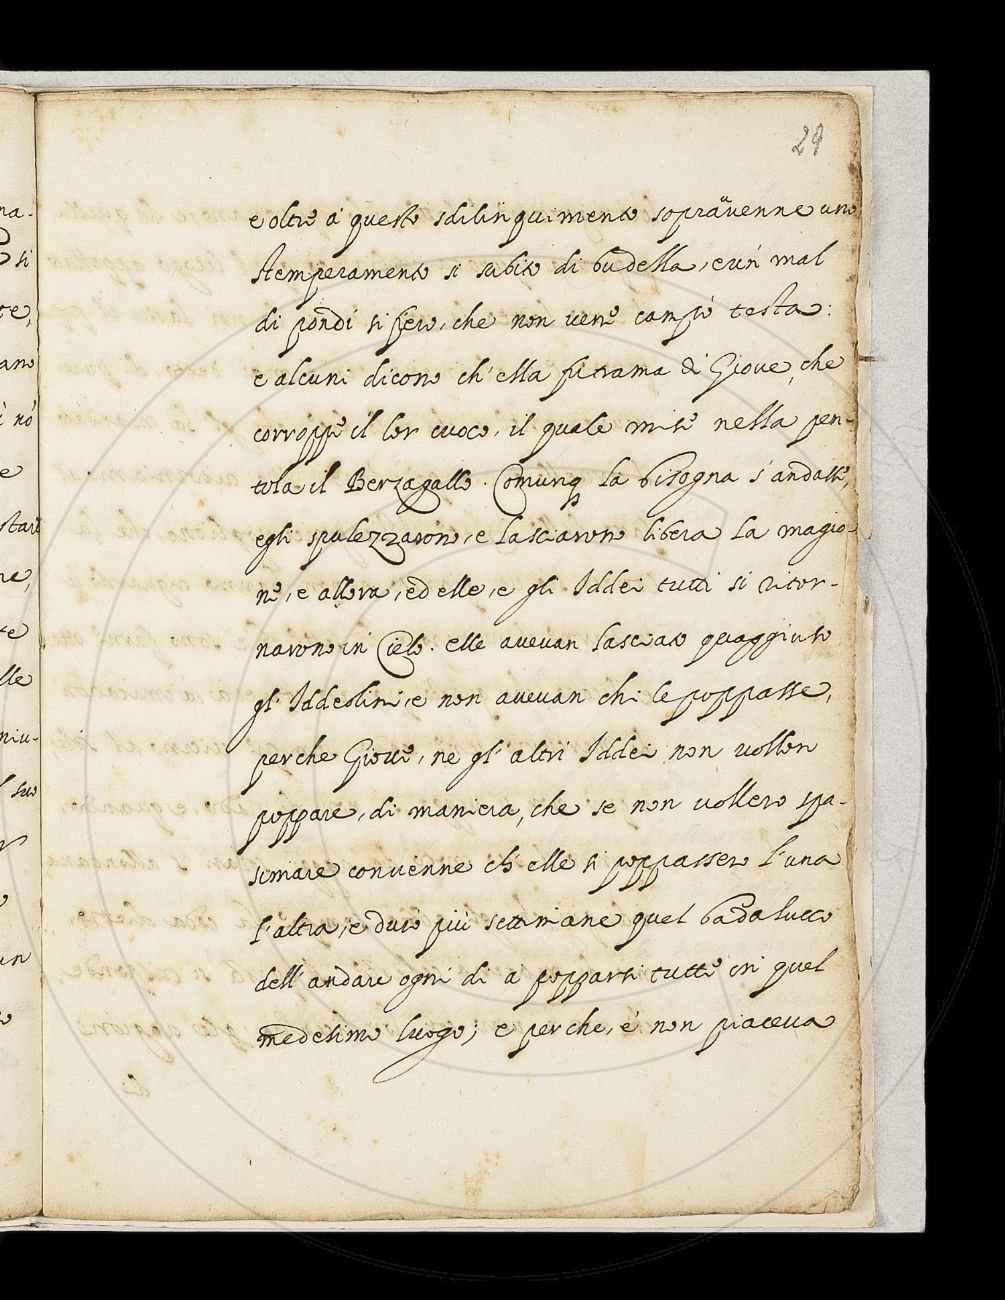 29
e oltre à questo sdilinquimento soprauuenne uno
stemperamento si subito di budella, e un' mal
di pondi si fiero, che non uene campò testa:
e alcuni dicono ch' ella fù trama di Gioue, che
corroppe il lor cuoco, il quale mise nella pen-
tola il Berzagallo. Comunq la bisogna s' andasse,
egli spulezzarono, e lasciarono libera la magio-
ne, e allora, ed elle, e gli Iddei tutti si ritor-
narono in Cielo. elle aueuan lasciato quaggiuso
gl' Iddeolini, e non aueuan chi le poppasse,
perche Gioue, ne gl' altri Iddei non uollon
poppare, di maniera, che se non uollero spa-
simare conuenne ch' elle si poppassero l' una
l' altra, e durò più settimane quel badalucco
dell' andare ogni dì a popparsi tutte in quel
medesimo luogo; e perche, e' non piaceua